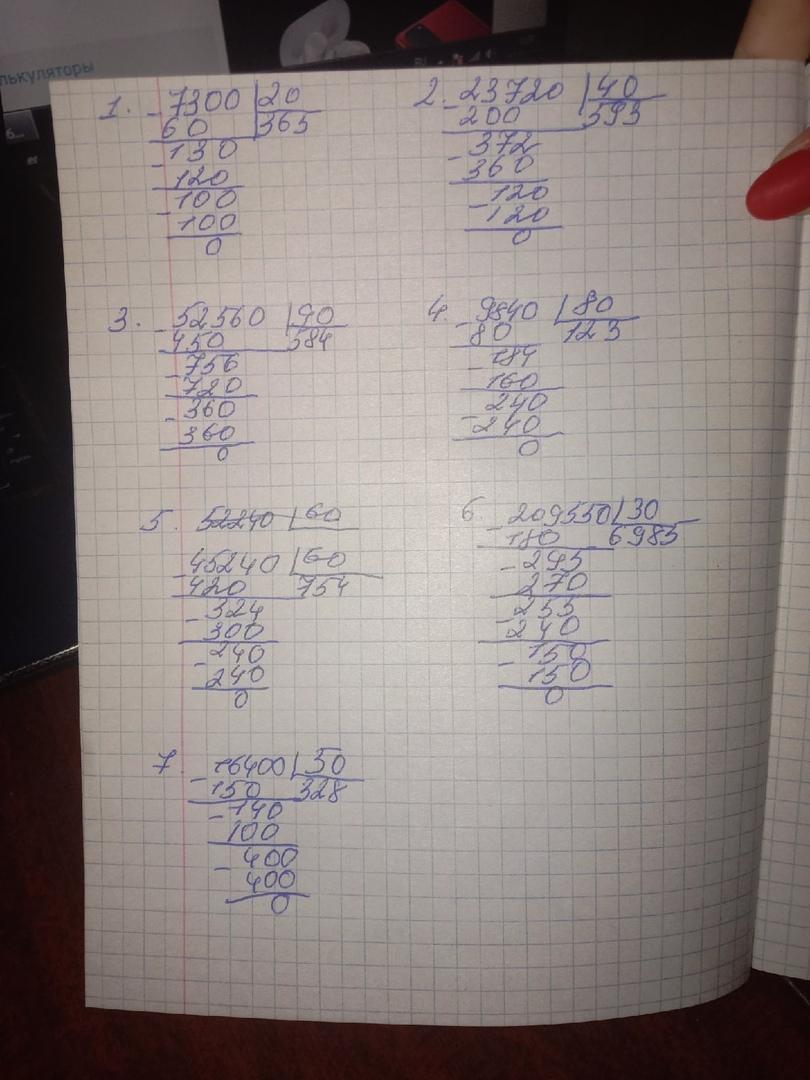 лькуляторы
6...
1. 7300 20
- 60 365
- 130
120
- 100
100
0
2. 23720 40
- 200 593
- 372
360
- 120
120
0
3. 52560 90
- 450 584
- 756
720
- 360
360
0
4. 9840 80
- 80 123
- 184
160
- 240
240
0
5. 52240 60
45240 60
- 420 754
- 324
300
- 240
240
0
6. 209550 30
- 180 6985
- 295
270
- 255
240
- 150
150
0
7. 16400 50
- 150 328
- 140
100
- 400
400
0